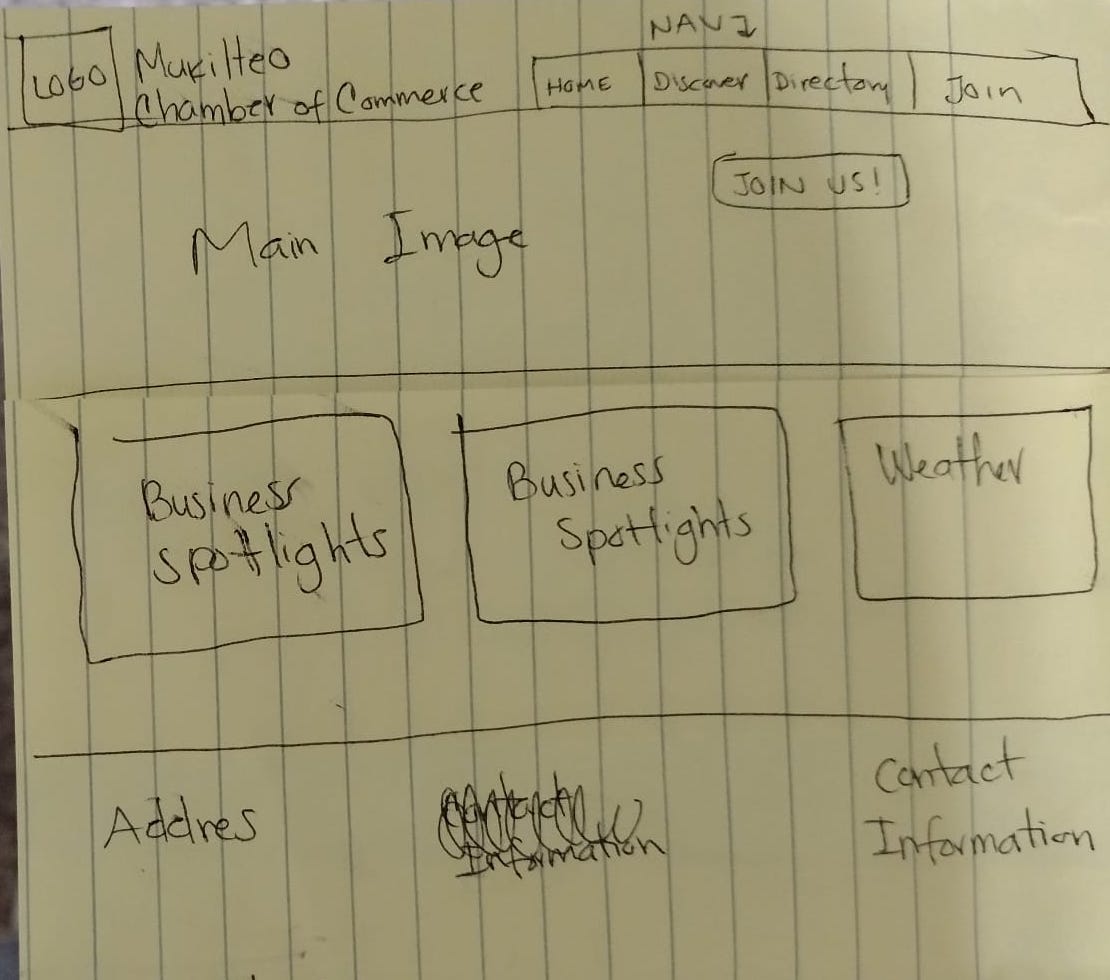 NAVI
LOGO
Mukilteo
Chamber of Commerce
HOME Discover Directory Join
JOIN US!
Main Image
Business
Spotlights
Business
Spotlights
Weather
Addres
Information
Contact
Information